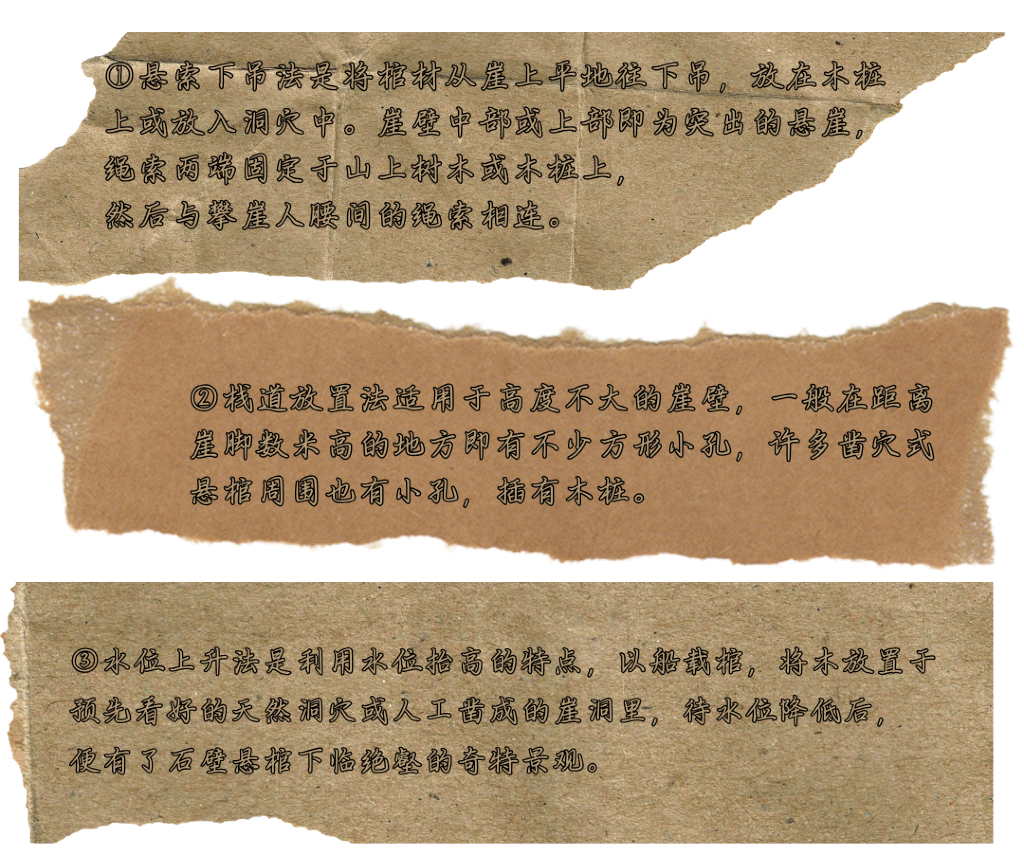 ①悬索下吊法是将棺材从崖上平地往下吊，放在木桩
上或放入洞穴中。崖壁中部或上部即为突出的悬崖，
绳索两端固定于山上树木或木桩上，
然后与攀崖人腰间的绳索相连。
②栈道放置法适用于高度不大的崖壁，一般在距离
崖脚数米高的地方即有不少方形小孔，许多凿穴式
悬棺周围也有小孔，插有木桩。
③水位上升法是利用水位抬高的特点，以船载棺，将木放置于
预先看好的天然洞穴或人工凿成的崖洞里，待水位降低后，
便有了石壁悬棺下临绝壑的奇特景观。